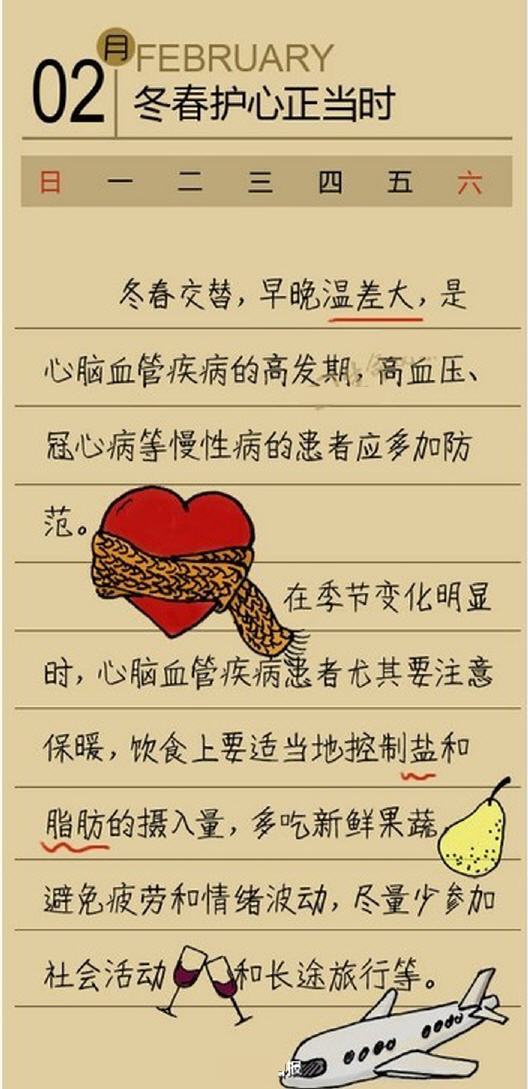 月
02 FEBRUARY
冬春护心正当时
日 一 二 三 四 五 六
冬春交替，早晚温差大，是
心脑血管疾病的高发期，高血压、
冠心病等慢性病的患者应多加防
范。
在季节变化明显
时，心脑血管疾病患者尤其要注意
保暖，饮食上要适当地控制盐和
脂肪的摄入量，多吃新鲜果蔬，
避免疲劳和情绪波动，尽量少参加
社会活动和长途旅行等。
报